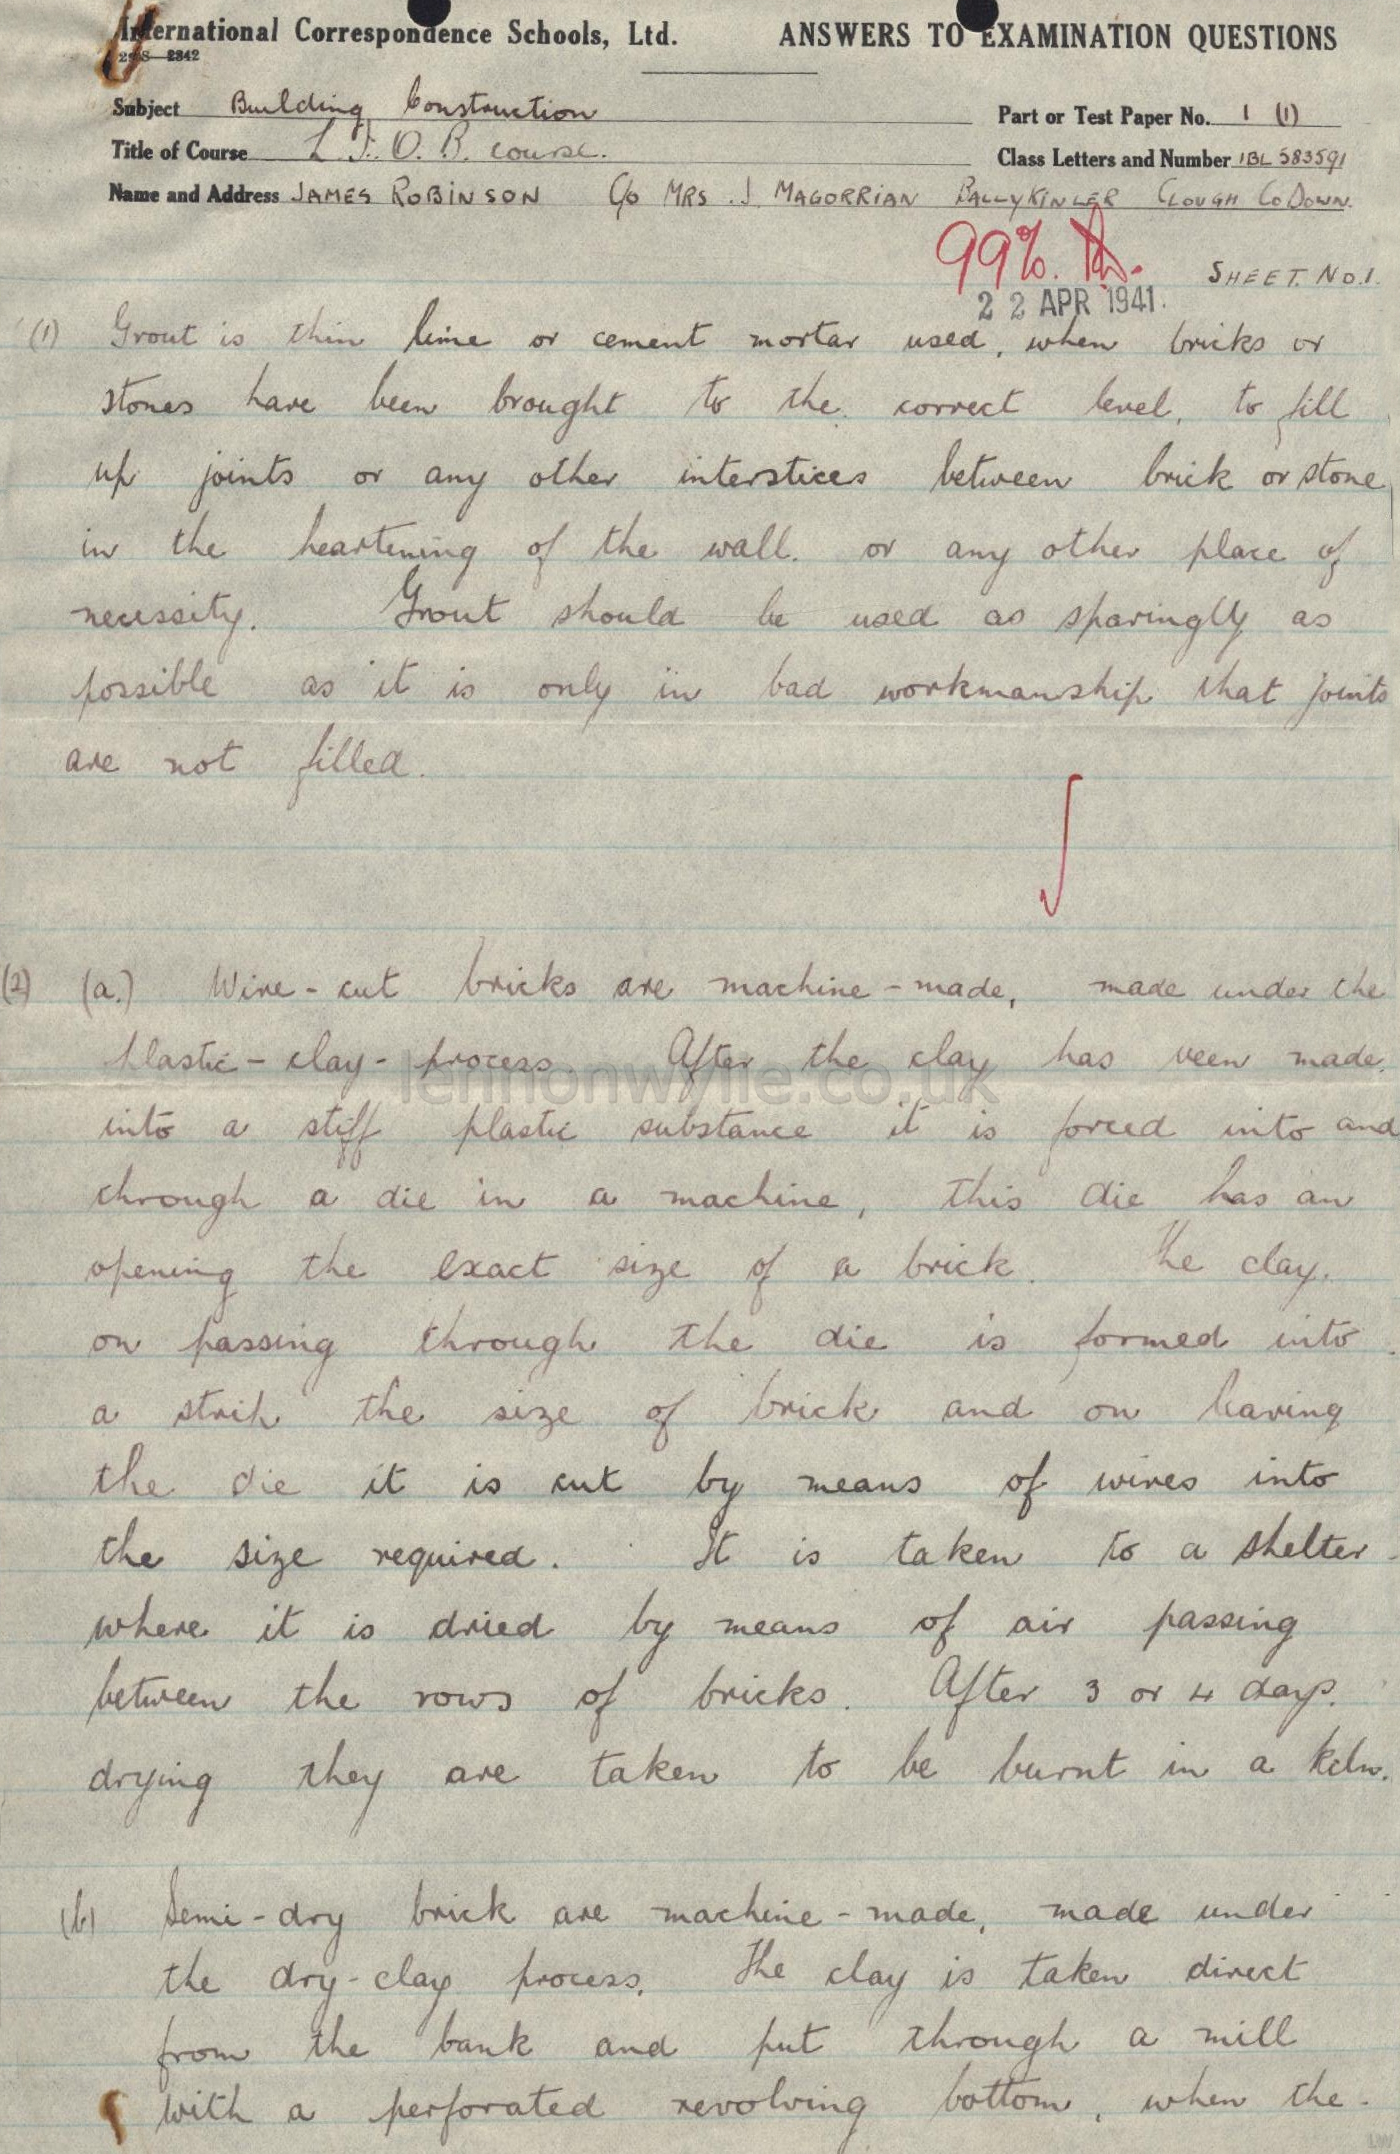 International Correspondence Schools, Ltd. ANSWERS TO EXAMINATION QUESTIONS
2342
Subject Building Construction Part or Test Paper No. 1 (1)
Title of Course L.I.O.B. course. Class Letters and Number 1BL 583591
Name and Address JAMES ROBINSON C/o MRS. J. MAGORRIAN BALLYKINLER CLOUGH Co DOWN.
99%.
SHEET. NO.1.
22 APR 1941.
(1) Grout is thin lime or cement mortar used, when bricks or
stones have been brought to the correct level, to fill
up joints or any other interstices between brick or stone
in the heartening of the wall. or any other place of
necessity. Grout should be used as sparingly as
possible as it is only in bad workmanship that joints
are not filled.
(2) (a.) Wire-cut bricks are machine-made, made under the
plastic-clay-process. After the clay has veen made
lennonwylie.co.uk
into a stiff plastic substance it is forced into and
through a die in a machine, this die has an
opening the exact size of a brick. The clay.
on passing through the die is formed into
a strip the size of brick and on leaving
the die it is cut by means of wires into
the size required. It is taken to a shelter
where it is dried by means of air passing
between the rows of bricks. After 3 or 4 days.
drying they are taken to be burnt in a kiln.
(b) Semi-dry brick are machine-made, made under
the dry-clay process. The clay is taken direct
from the bank and put through a mill
with a perforated revolving bottom, when the